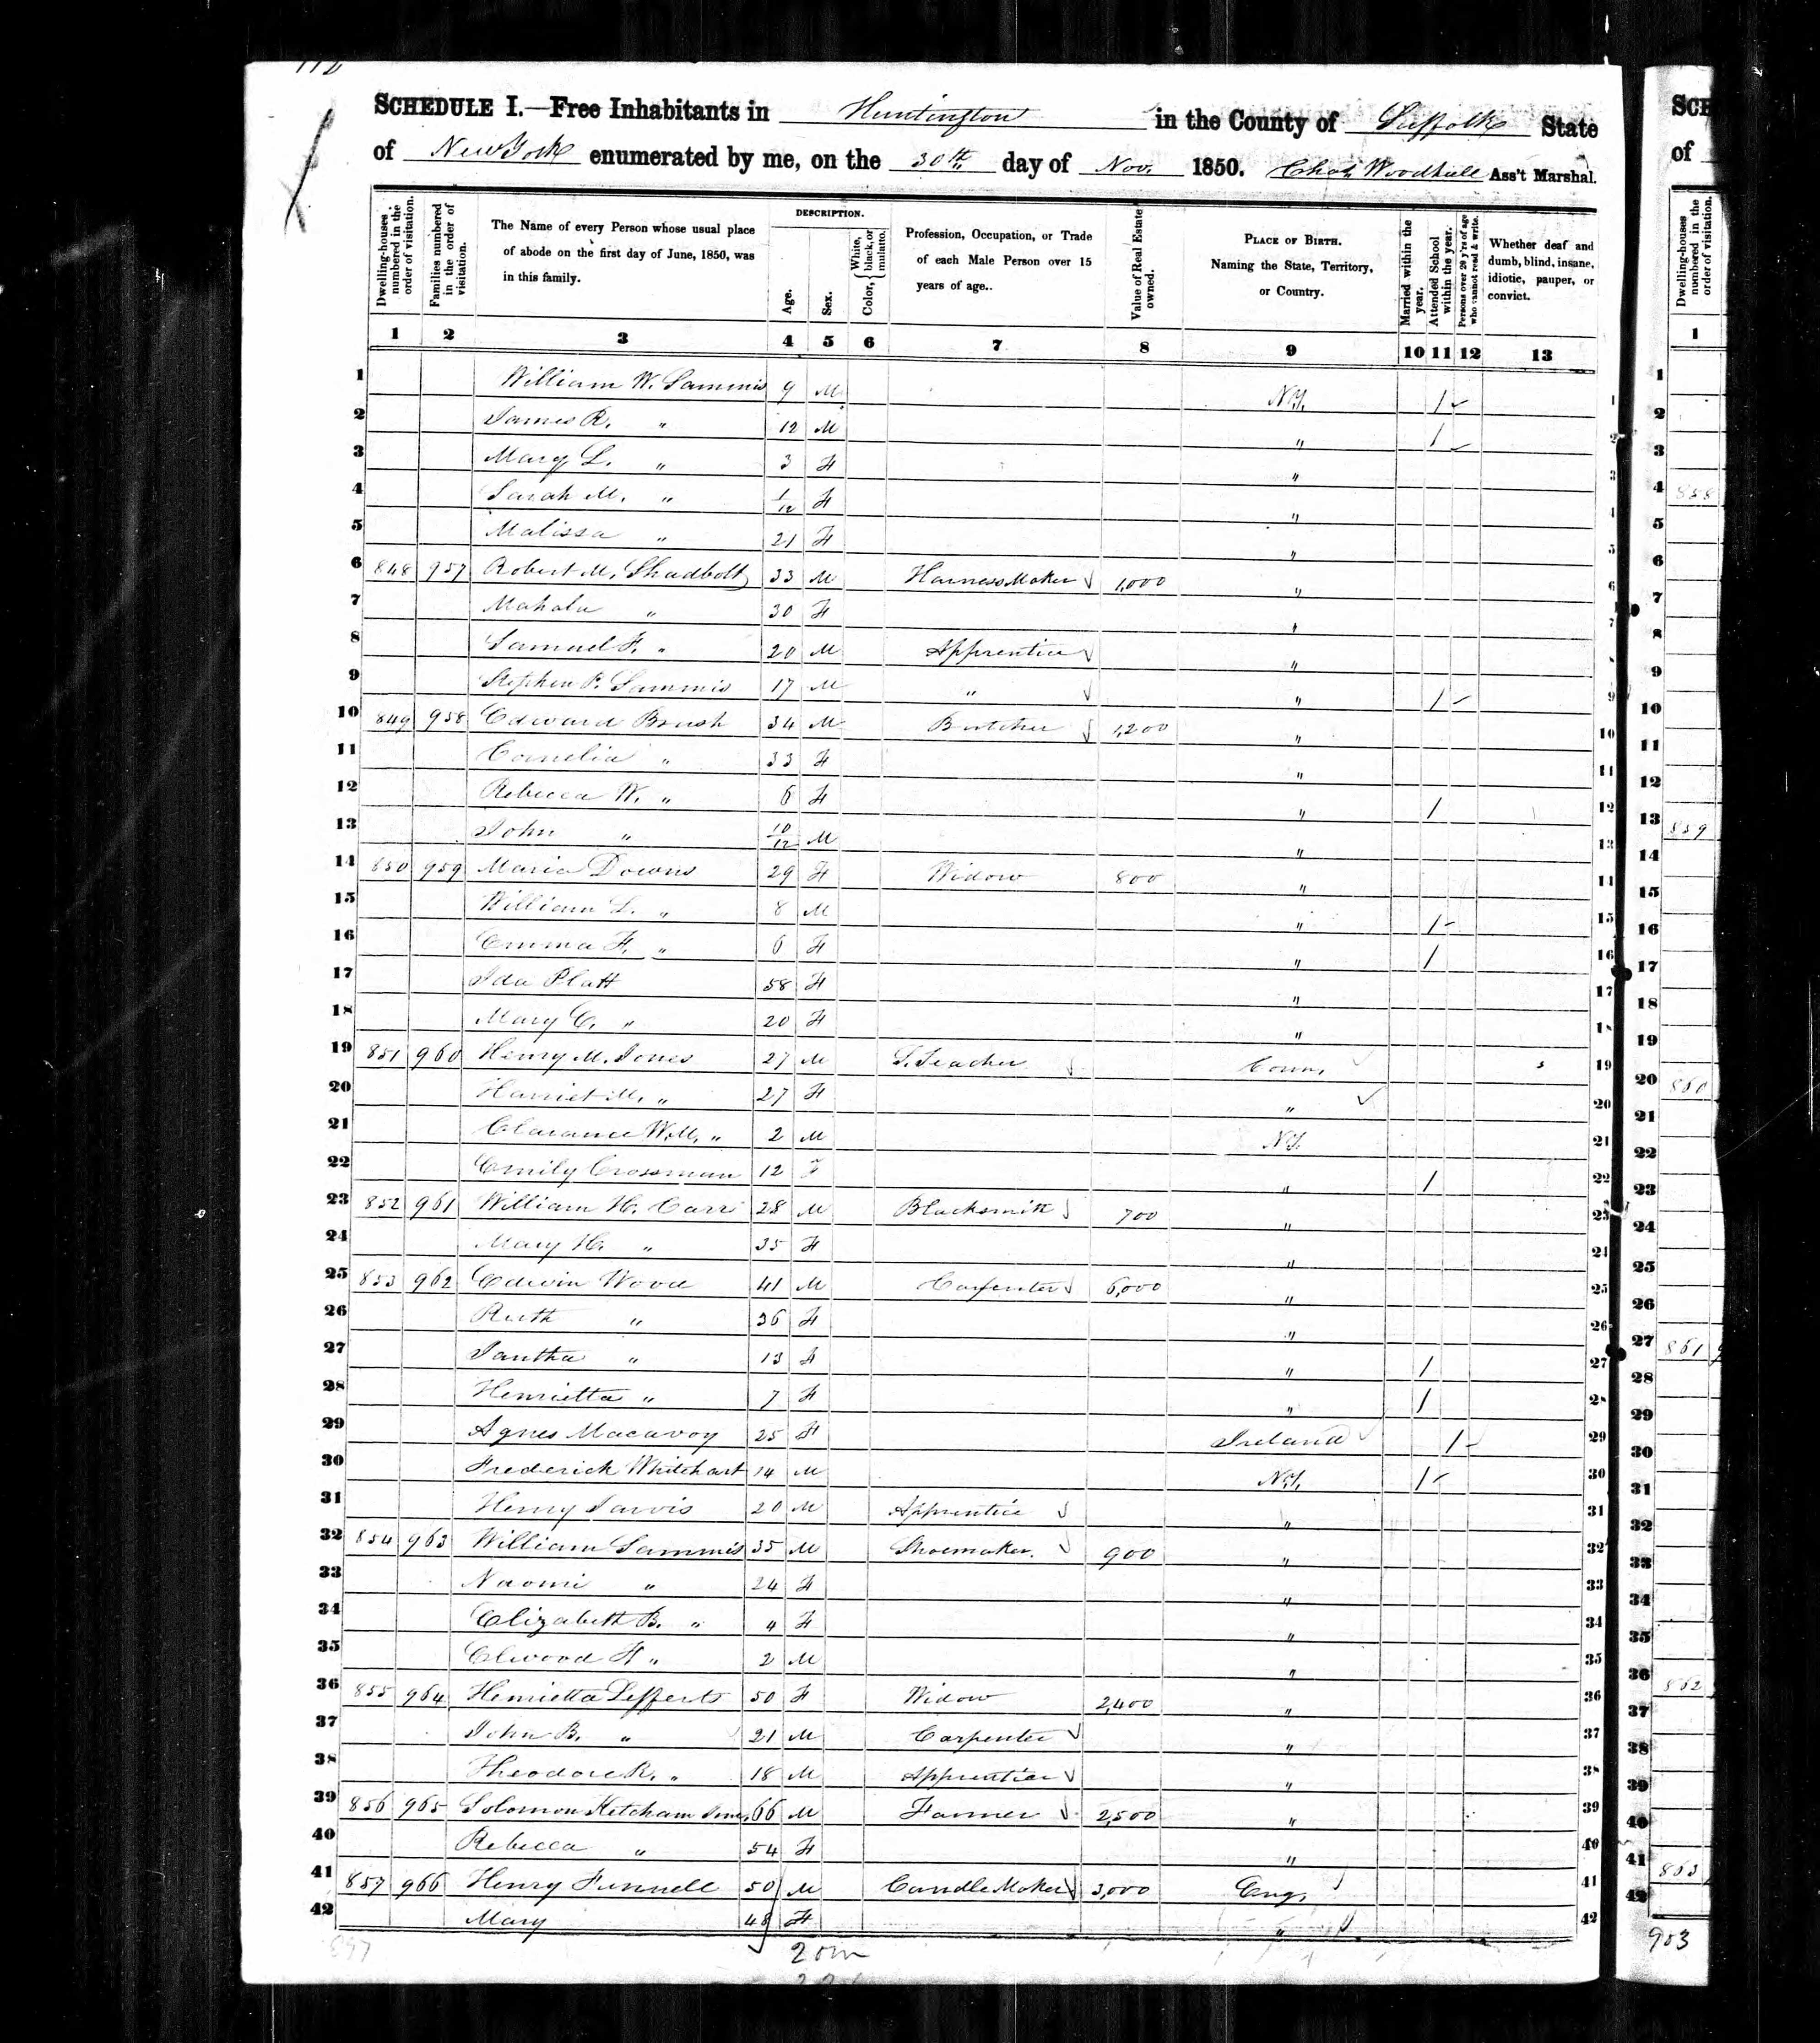 112
SCHEDULE I.—Free Inhabitants in Huntington in the County of Suffolk State
of New York enumerated by me, on the 30th day of Nov. 1850. Chas. Woodhull Ass't Marshal.
Dwelling-houses numbered in the order of visitation.
Families numbered in the order of visitation.
The Name of every Person whose usual place of abode on the first day of June, 1850, was in this family.
DESCRIPTION.
Age.
Sex.
Color, White, black, or mulatto.
Profession, Occupation, or Trade of each Male Person over 15 years of age.
Value of Real Estate owned.
PLACE OF BIRTH. Naming the State, Territory, or Country.
Married within the year.
Attended School within the year.
Persons over 20 y'rs of age who cannot read & write.
Whether deaf and dumb, blind, insane, idiotic, pauper, or convict.
1 2 3 4 5 6 7 8 9 10 11 12 13
1 William W. Sammis 9 M N.Y. / 1
2 James R. " 12 M " / 2
3 Mary L. " 3 F " 3
4 Sarah M. " 1/12 F " 4
5 Malissa " 21 F " 5
6 848 957 Robert M. Shadbolt 33 M Harness Maker 1,000 " 6
7 Mahala " 30 F " 7
8 Samuel F. " 20 M Apprentice " 8
9 Stephen P. Sammis 17 M " " / 9
10 849 958 Edward Brush 34 M Butcher 1,200 " 10
11 Cornelia " 33 F " 11
12 Rebecca W. " 6 F " / 12
13 John " 10/12 M " 13
14 850 959 Maria Downs 29 F Widow 800 " 14
15 William L. " 8 M " / 15
16 Emma F. " 6 F " / 16
17 Ida Platt 58 F " 17
18 Mary C. " 20 F " 18
19 851 960 Henry M. Jones 27 M S. Teacher Conn. 19
20 Harriet M. " 27 F " 20
21 Clarance W.M. " 2 M N.Y. 21
22 Emily Crossman 12 F " / 22
23 852 961 William H. Carr 28 M Blacksmith 700 " 23
24 Mary H. " 35 F " 24
25 853 962 Edwin Wood 41 M Carpenter 6,000 " 25
26 Ruth " 36 F " 26
27 Iantha " 13 F " / 27
28 Henrietta " 7 F " / 28
29 Agnes Macavoy 25 F Ireland / 29
30 Frederick Whitehart 14 M N.Y. / 30
31 Henry Jarvis 20 M Apprentice " 31
32 854 963 William Sammis 35 M Shoemaker. 900 " 32
33 Naomi " 24 F " 33
34 Elizabeth B. " 4 F " 34
35 Elwood H " 2 M " 35
36 855 964 Henrietta Lefferts 50 F Widow 2,400 " 36
37 John B. " 21 M Carpenter " 37
38 Theodore R. " 18 M Apprentice " 38
39 856 965 Solomon Ketcham 66 M Farmer 2,500 " 39
40 Rebecca " 54 F " 40
41 857 966 Henry Funnell 50 M Candle Maker 3,000 Eng. 41
42 Mary 48 F " 42
897
20 m
SCH
of
Dwelling-houses numbered in the order of visitation.
1
1
2
3
4 858
5
6
7
8
9
10
11
12
13 859
14
15
16
17
18
19
20 860
21
22
23
24
25
26
27 861
28
29
30
31
32
33
34
35
36 862
37
38
39
40
41 863
42
903